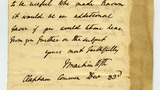 to be useful. who made known
it would be an additional
favor if you could then hear
from you further on the subject
yours most faithfully
Clapham Common Dec 23d